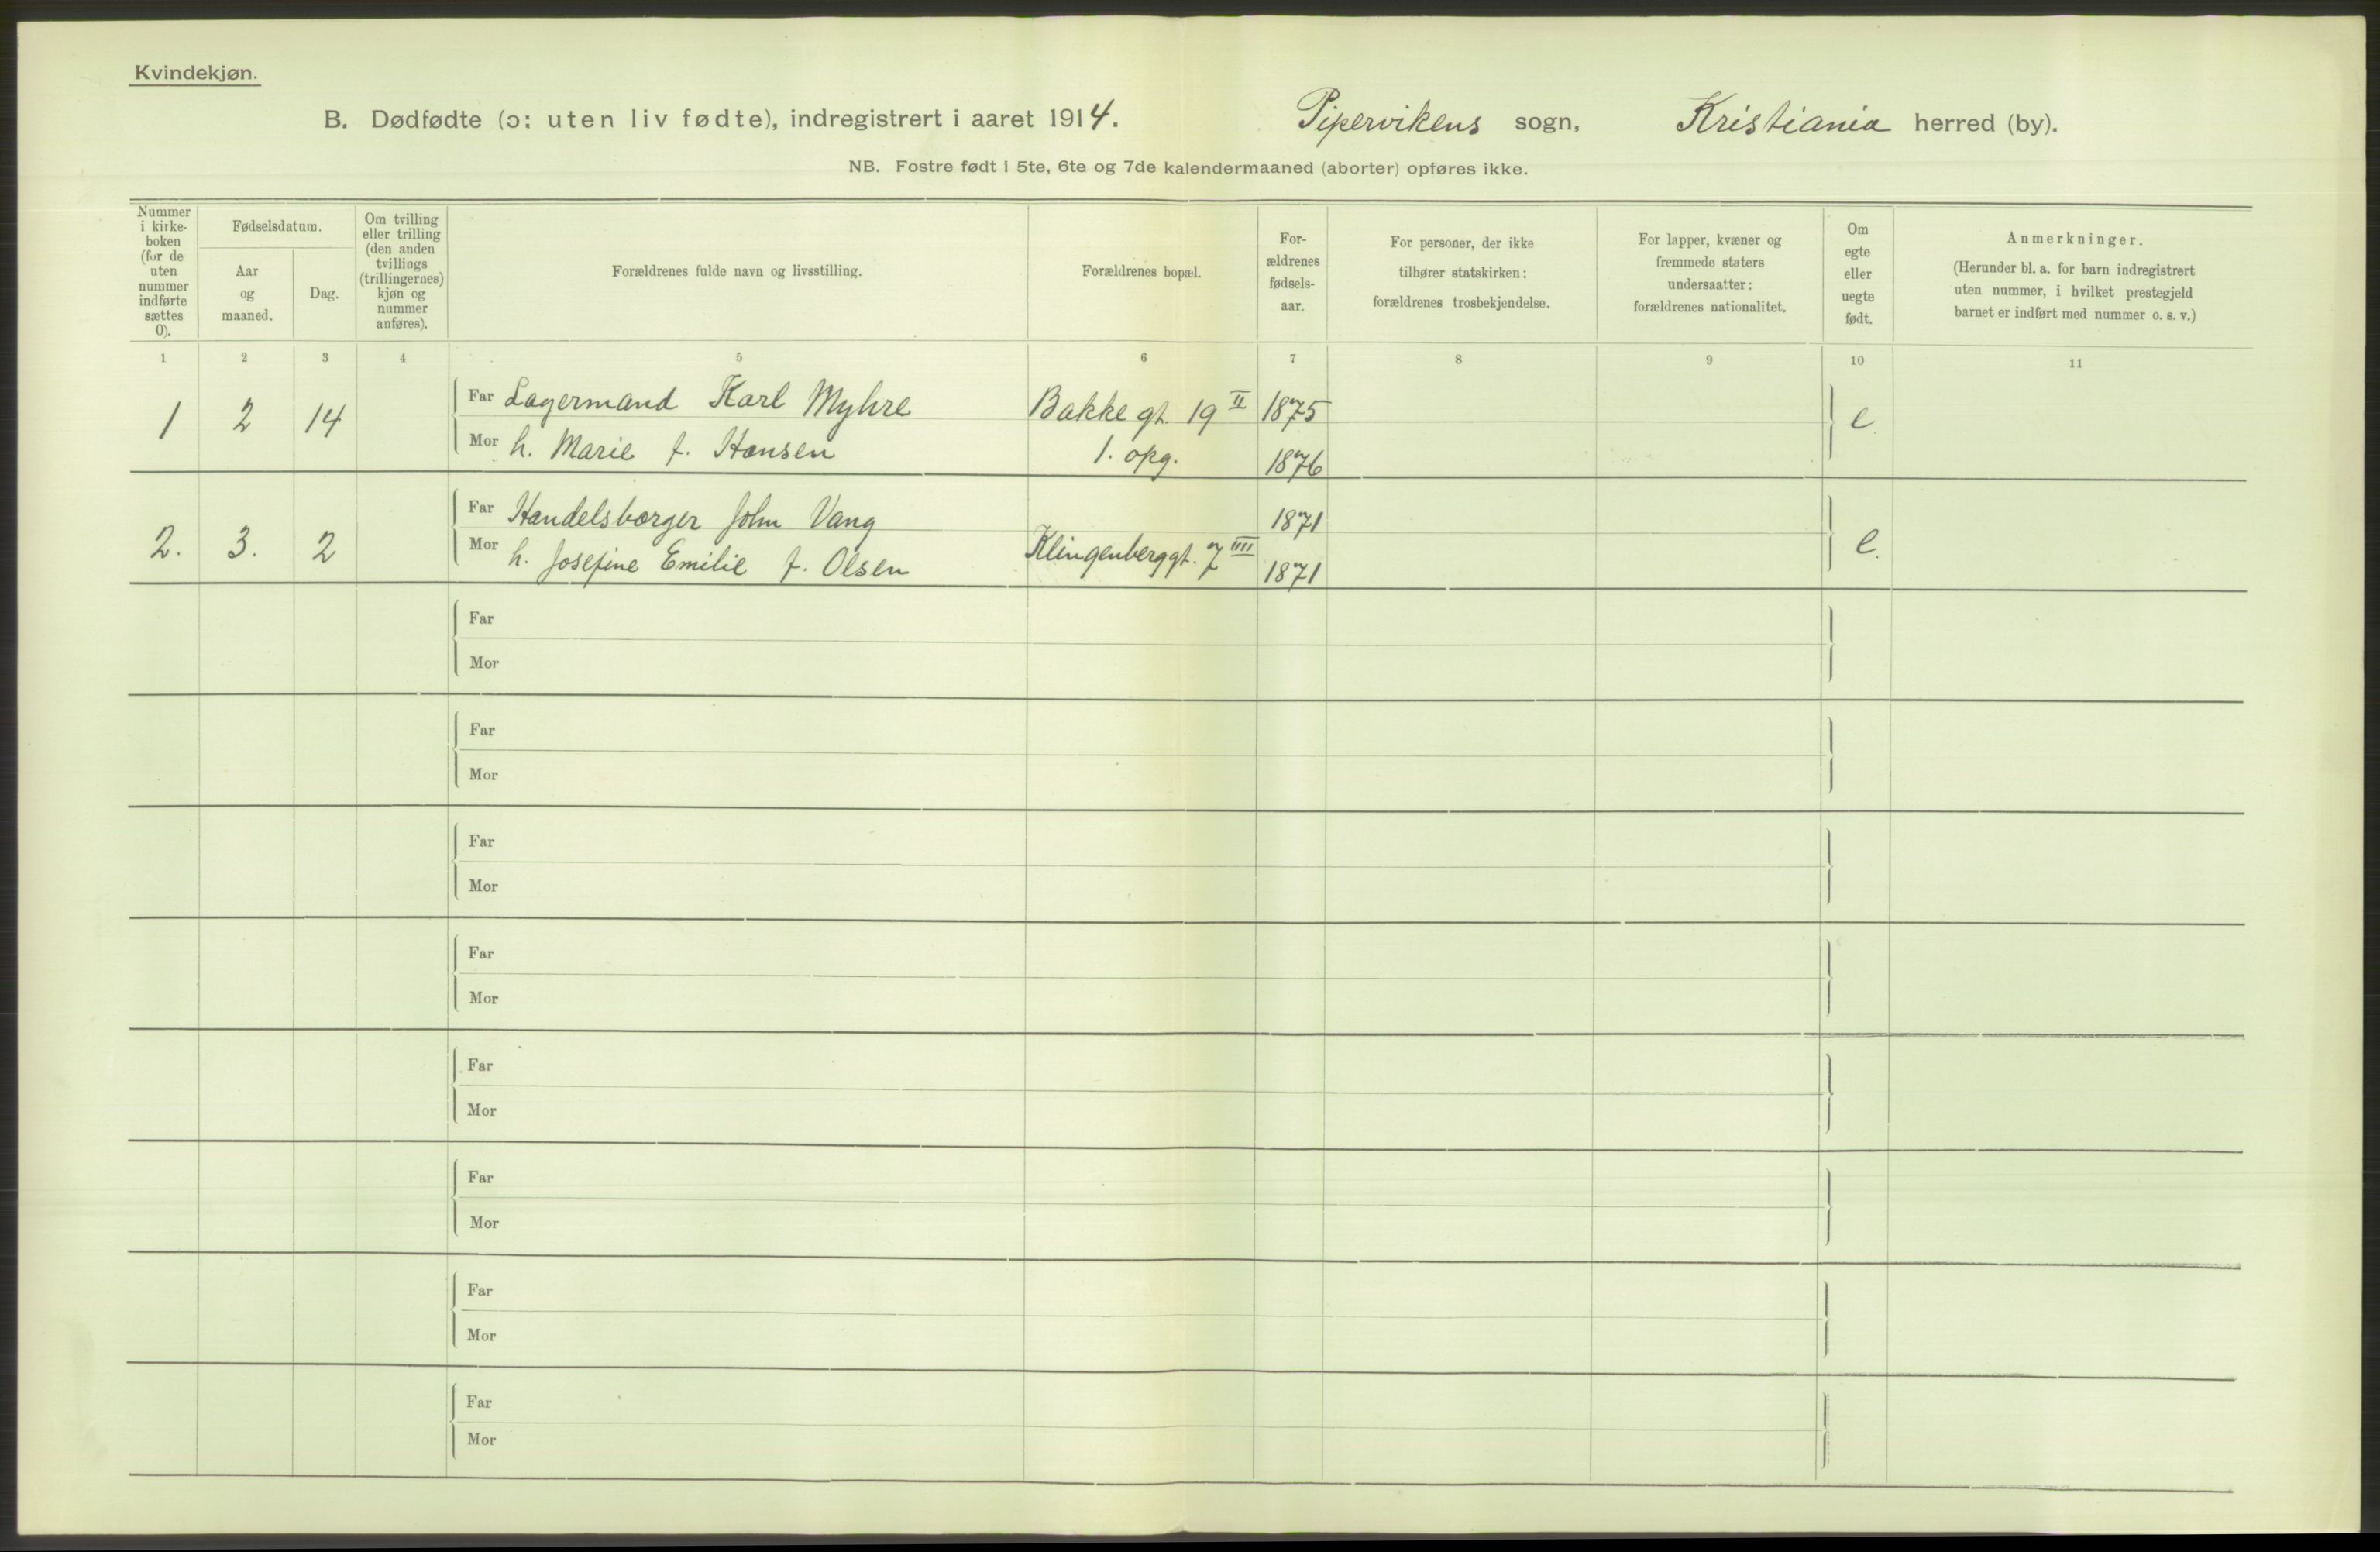 Kvindekjøn.
B. Dødfødte (ɔ: uten liv fødte), indregistrert i aaret 1914. Pipervikens sogn, Kristiania herred (by).
NB. Fostre født i 5te, 6te og 7de kalendermaaned (aborter) opføres ikke.
Nummer
i kirke-
boken
(for de
uten
nummer
indførte
sættes
0).
Fødselsdatum.
Aar
og
maaned.
Dag.
Om tvilling
eller trilling
(den anden
tvillings
(trillingernes)
kjøn og
nummer
anføres).
Forældrenes fulde navn og livsstilling.
Forældrenes bopæl.
For-
ældrenes
fødsels-
aar.
For personer, der ikke
tilhører statskirken:
forældrenes trosbekjendelse.
For lapper, kvæner og
fremmede staters
undersaatter:
forældrenes nationalitet.
Om
egte
eller
uegte
født.
Anmerkninger.
(Herunder bl. a. for barn indregistrert
uten nummer, i hvilket prestegjeld
barnet er indført med nummer o. s. v.)
1 2 3 4 5 6 7 8 9 10 11
1 2 14 Far Lagermand Karl Myhre Bakke gt. 19 II 1875 e.
Mor h. Marie f. Hansen 1. opg. 1876
2. 3. 2 Far Handelsborger John Vang 1871 e.
Mor h. Josefine Emilie f. Olsen Klingenberggt. 7 IIII 1871
Far
Mor
Far
Mor
Far
Mor
Far
Mor
Far
Mor
Far
Mor
Far
Mor
Far
Mor